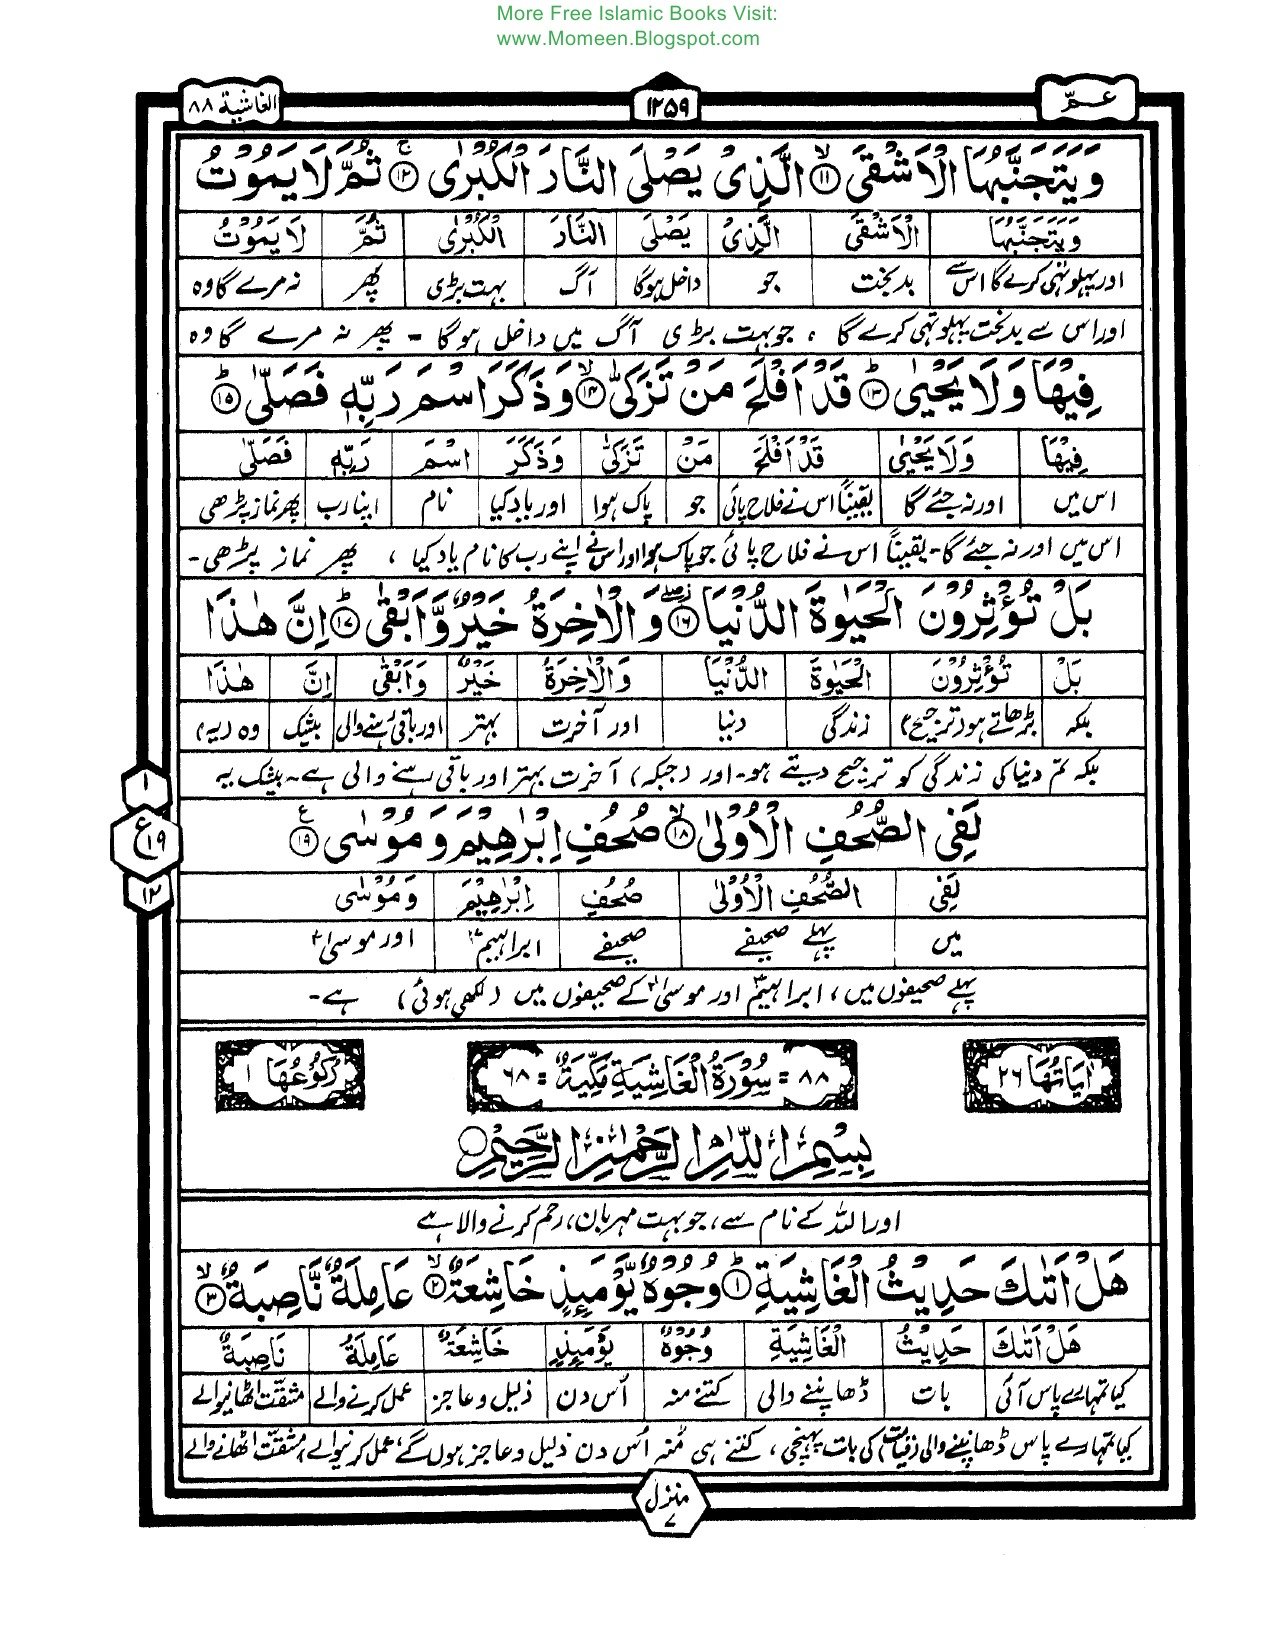 More Free Islamic Books Visit:
www.Momeen.Blogspot.com
عمّ ١٢٥٩ الغاشية ٨٨
وَيَتَجَنَّبُهَا الْاَشْقَى ۙ﴿١١﴾ الَّذِىْ يَصْلَى النَّارَ الْكُبْرٰى ۚ﴿١٢﴾ ثُمَّ لَا يَمُوْتُ
وَيَتَجَنَّبُهَا الْاَشْقَى الَّذِىْ يَصْلَى النَّارَ الْكُبْرٰى ثُمَّ لَا يَمُوْتُ
اور پہلو تہی کرے گا اس سے بدبخت جو داخل ہوگا آگ بہت بڑی پھر نہ مرے گا وہ
اور اس سے بدبخت پہلو تہی کرے گا ، جو بہت بڑی آگ میں داخل ہوگا - پھر نہ مرے گا وہ
فِيْهَا وَلَا يَحْيٰى ؕ﴿١٣﴾ قَدْ اَفْلَحَ مَنْ تَزَكّٰى ۙ﴿١٤﴾ وَذَكَرَ اسْمَ رَبِّهٖ فَصَلّٰى ؕ﴿١٥﴾
فِيْهَا وَلَا يَحْيٰى قَدْ اَفْلَحَ مَنْ تَزَكّٰى وَذَكَرَ اسْمَ رَبِّهٖ فَصَلّٰى
اس میں اور نہ جئے گا یقیناً اس نے فلاح پائی جو پاک ہوا اور یاد کیا نام اپنا رب پھر نماز پڑھی
اس میں اور نہ جئے گا - یقیناً اس نے فلاح پائی جو پاک ہوا اور اس نے اپنے رب کا نام یاد کیا ، پھر نماز پڑھی -
بَلْ تُؤْثِرُوْنَ الْحَيٰوةَ الدُّنْيَا ﴿١٦﴾ وَالْاٰخِرَةُ خَيْرٌ وَّاَبْقٰى ؕ﴿١٧﴾ اِنَّ هٰذَا
بَلْ تُؤْثِرُوْنَ الْحَيٰوةَ الدُّنْيَا وَالْاٰخِرَةُ خَيْرٌ وَاَبْقٰى اِنَّ هٰذَا
بلکہ بڑھاتے ہو (ترجیح) زندگی دنیا اور آخرت بہتر اور باقی رہنے والی بیشک وہ (یہ)
بلکہ تم دنیا کی زندگی کو ترجیح دیتے ہو - اور (جبکہ) آخرت بہتر اور باقی رہنے والی ہے - بیشک یہ
١
ع ١٩
١٢
لَفِى الصُّحُفِ الْاُوْلٰى ۙ﴿١٨﴾ صُحُفِ اِبْرٰهِيْمَ وَمُوْسٰى ﴿١٩﴾ ع
لَفِى الصُّحُفِ الْاُوْلٰى صُحُفِ اِبْرٰهِيْمَ وَمُوْسٰى
میں پہلے صحیفے صحیفے ابراہیمؑ اور موسیٰؑ
پہلے صحیفوں میں، ابراہیمؑ اور موسیٰؑ کے صحیفوں میں (لکھی ہوئی) ہے -
اٰيَاتُهَا ٢٦ ٨٨ = سُوْرَةُ الْغَاشِيَةِ مَكِّيَّةٌ = ٦٨ رُكُوْعُهَا ١
بِسْمِ اللهِ الرَّحْمٰنِ الرَّحِيْمِ
اور اللہ کے نام سے، جو بہت مہربان، رحم کرنے والا ہے
هَلْ اَتٰىكَ حَدِيْثُ الْغَاشِيَةِ ؕ﴿١﴾ وُجُوْهٌ يَّوْمَئِذٍ خَاشِعَةٌ ۙ﴿٢﴾ عَامِلَةٌ نَّاصِبَةٌ ۙ﴿٣﴾
هَلْ اَتٰىكَ حَدِيْثُ الْغَاشِيَةِ وُجُوْهٌ يَوْمَئِذٍ خَاشِعَةٌ عَامِلَةٌ نَاصِبَةٌ
کیا تمہارے پاس آئی بات ڈھانپنے والی کتنے منہ اُس دن ذلیل و عاجز عمل کرنے والے مشقت اٹھانیوالے
کیا تمہارے پاس ڈھانپنے والی (قیامت) کی بات پہنچی ، کتنے ہی مُنہ اُس دن ذلیل و عاجز ہوں گے، عمل کرنیوالے، مشقت اٹھانے والے
منزل ٧